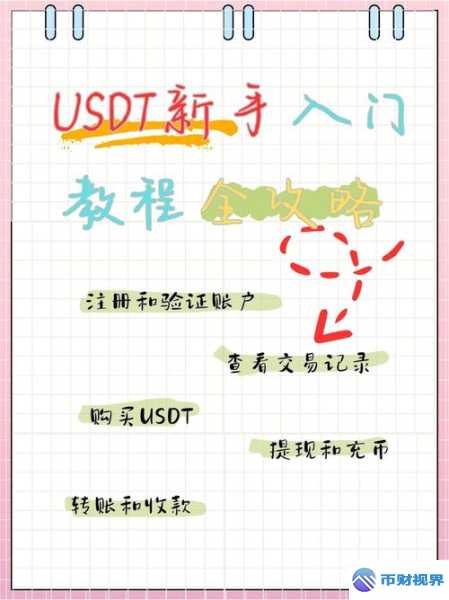 USDT新手入门
教程全攻略
注册和验证账户
查看交易记录
购买USDT
提现和充币
转账和收款
币财视界